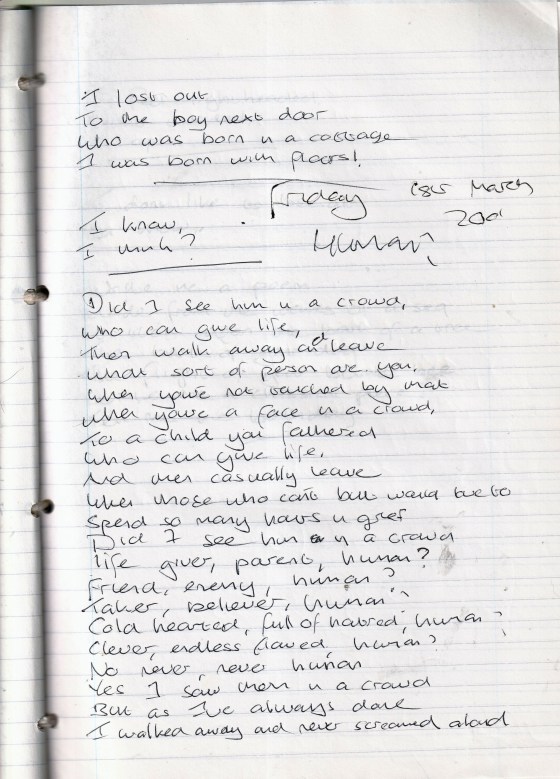 I lost out
To the boy next door
Who was born in a cottage
I was born with floors!
Friday March
I know,
I think? Human?
① Did I see him in a crowd,
Who can give life,
Then walk away and leave
What sort of person are you,
When you're not touched by that
When you're a face in a crowd,
To a child you fathered
Who can give life,
And then casually leave
When those who can't but would love to
Spend so many hours in grief
Did I see him in a crowd
Life giver, parent, human?
Friend, enemy, human?
Taker, believer, human?
Cold hearted, full of hatred, human?
Clever, endless flawed, human?
No never, never human
Yes I saw them in a crowd
But as I've always done
I walked away and never screamed aloud